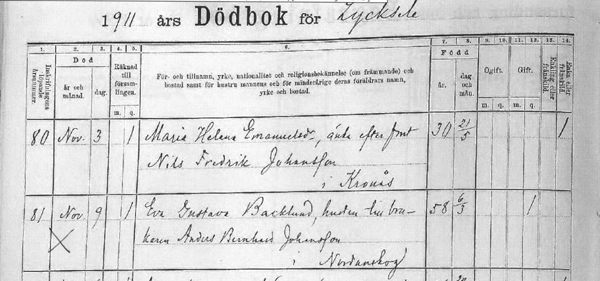 1911 års Dödbok för Lycksele
1. 2. 3. 4. 5. 6. 7. 8. 9. 10. 11. 12. 13. 14.
Inskrifningens löpande årsnummer. Död Räknad till församlingen. Född Ogift. Gift. Enkling eller frånskild. Enka eller frånskild.
år och månad. dag. För- och tillnamn, yrke, nationalitet och religionsbekännelse (om främmande) och bostad samt för hustru mannens och för minderårige deras föräldrars namn, yrke och bostad. år. dag och mån.
m. q. m. q. m. q.
80 Nov. 3 1 Maria Helena Emanuelsdr, änka efter 30 21/5 1
Nils Fredrik Johansson
i Kronås
81 Nov. 9 1 Eva Gustava Backlund, hustru till bru- 58 6/3 1
karen Anders Bernhard Johansson
i Nordanskog